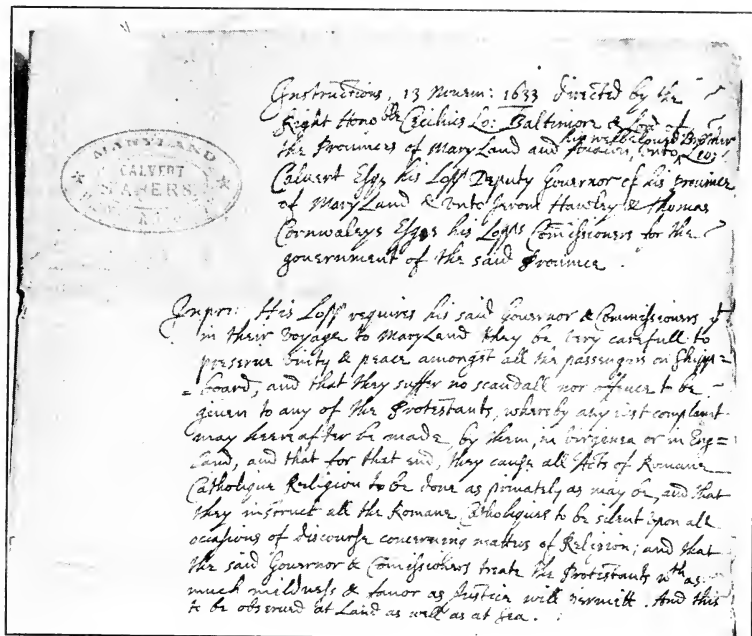 Instructions, 13 Novem: 1633 directed by the
Right Honoble Cecilius Lo: Baltimore & Lord of
the Provinces of Mary Land and Avalon, unto
his well beloved Brother Leo:
Calvert Esqr his Lopps Deputy Governor of his province
of Mary Land & unto Jerom Hawley & Thomas
Cornwaleys Esqrs his Lopps Comissioners for the
government of the said Province.
MARYLAND
CALVERT
PAPERS
Inpri: His Lopp requires his said Governor & Commissioners yt
in their voyage to Mary Land they be very carefull to
preserve unity & peace amongst all the passengers on Shipp=
=board, and that they suffer no scandall nor offence to be
given to any of the Protestants, whereby any just complaint
may heereafter be made, by them, in Virginea or in Eng=
land, and that for that end, they cause all Acts of Romane
Catholique Religion to be done as privately as may be, and that
they instruct all the Romane Catholiques to be silent upon all
occasions of discourse concerning matters of Religion; and that
the said Governor & Comissioners treate the Protestants wth as
much mildness & favor as Justice will permitt. And this
to be observed at Land as well as at Sea.